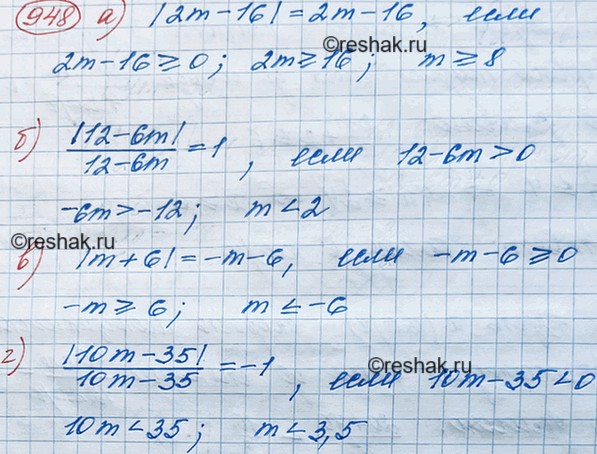 948 а) |2m-16| = 2m-16, если
©reshak.ru
2m-16≥0; 2m≥16; m≥8
б) |12-6m|/12-6m = 1, если 12-6m>0
-6m>-12; m<2
©reshak.ru
в) |m+6| = -m-6, если -m-6≥0
-m≥6; m≤-6
г) |10m-35|/10m-35 = -1, если 10m-35<0
©reshak.ru
10m<35; m<3,5